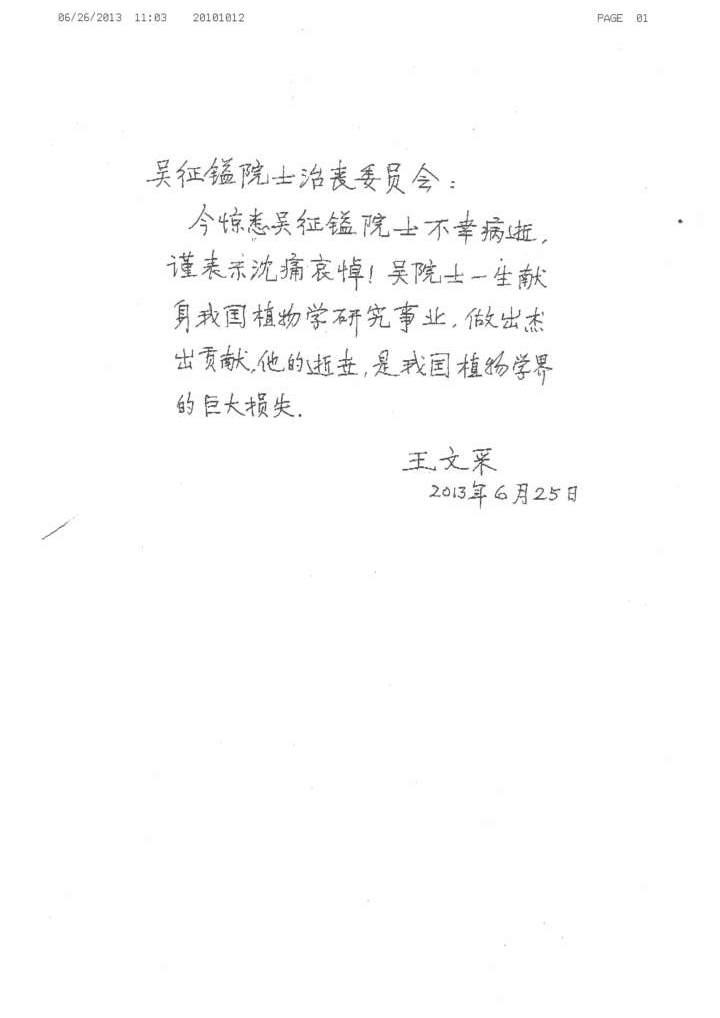 06/26/2013 11:03 20101012 PAGE 01
吴征镒院士治丧委员会:
今惊悉吴征镒院士不幸病逝,
谨表示沈痛哀悼! 吴院士一生献
身我国植物学研究事业, 做出杰
出贡献, 他的逝世, 是我国植物学界
的巨大损失.
王文采
2013年6月25日